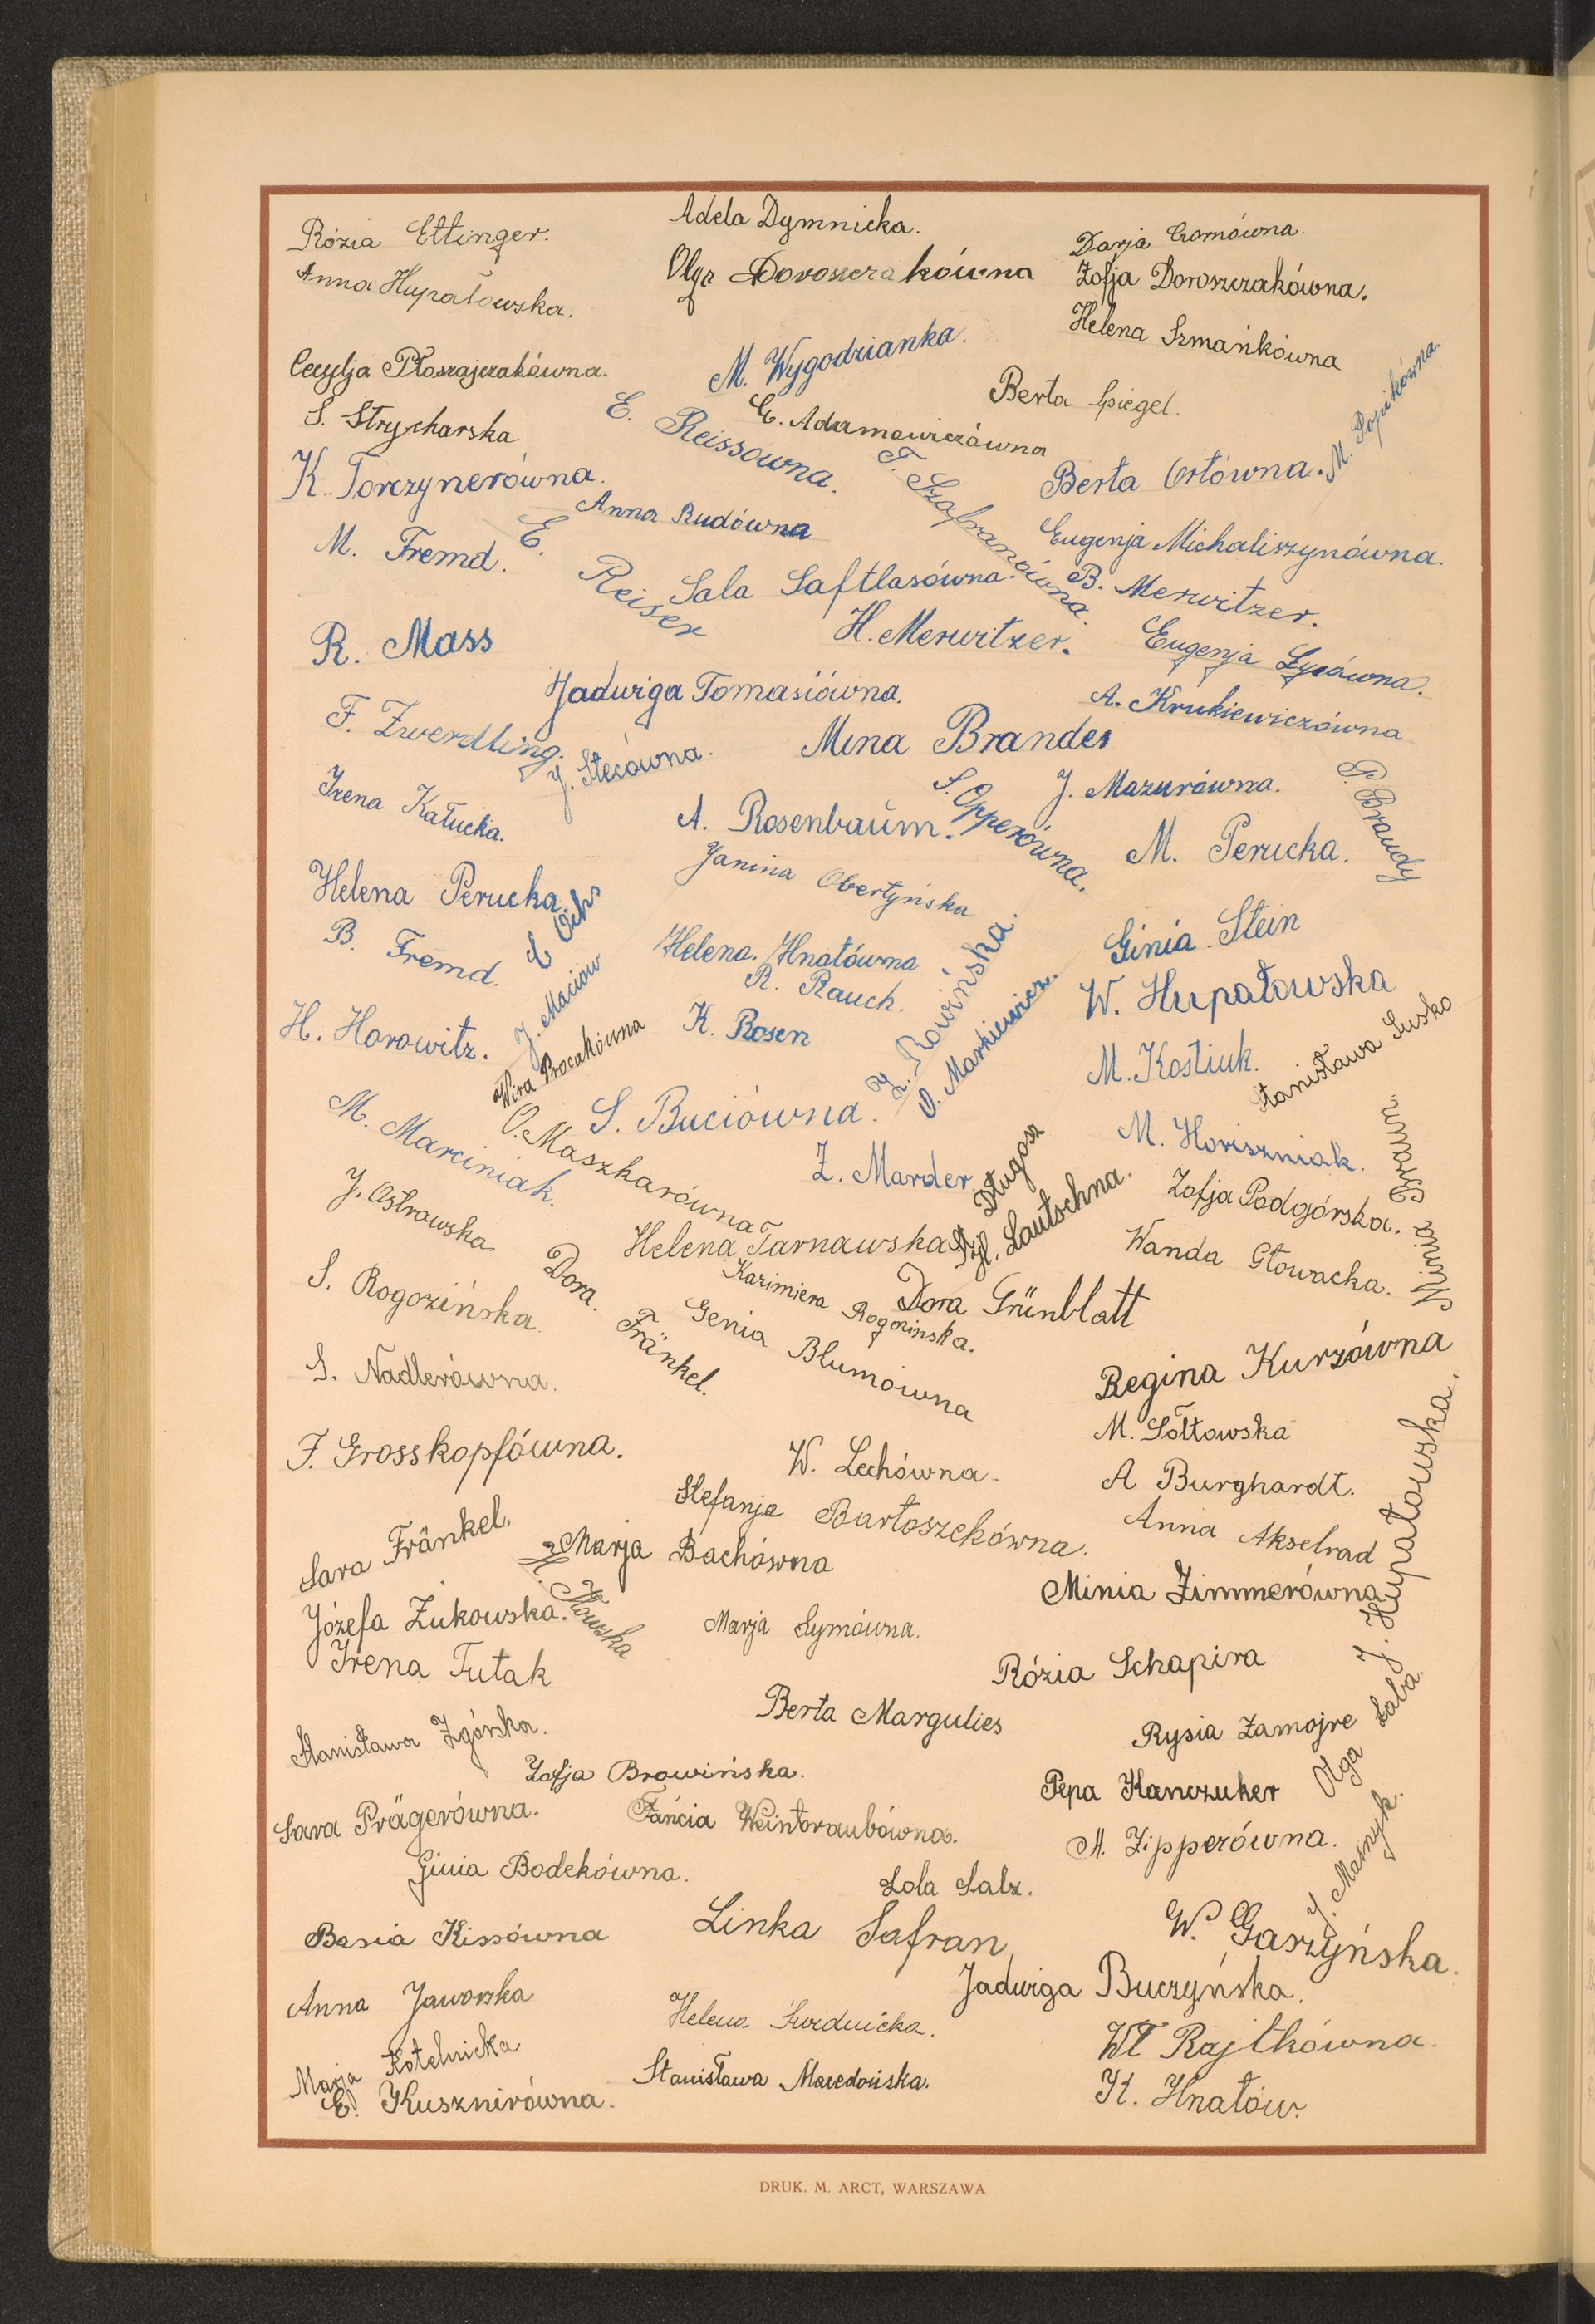 Rózia Ettinger.
Adela Dymnicka.
Darja Czornówna.
Anna Hupałowska.
Olga Doroszczakówna
Zofja Doroszczakówna.
Helena Szmańkówna
Cecylja Płoszajczakówna.
M. Wygodzianka.
Berta Spiegel.
M. Popikówna.
S. Strycharska
E. Reissówna.
E. Adamowiczówna
K. Torczynerówna.
T. Szafranówna.
Berta Ortówna.
Anna Rudówna
Eugenja Michaliszynówna.
M. Fremd.
E. Reiser
Sala Saftlasówna.
B. Merwitzer.
R. Mass
H. Merwitzer.
Eugenja Łysówna.
Jadwiga Tomasiówna.
A. Krukiewiczówna
F. Zwerdling.
J. Stecówna.
Mina Brandes
Irena Kałucka.
S. Opperówna.
J. Mazurówna.
P. Brandy
A. Rosenbaum.
M. Perucka.
Janina Obertyńska
Helena Perucka.
C Ochs
Ginia Stein
B. Fremd.
J. Maciów
Helena Hnatówna
R. Rauch.
Z. Rowińska.
W. Hupałowska
H. Horowitz.
Wira Procakówna
K. Rosen
O. Markiewicz.
M. Kostiuk.
Stanisława Susko
M. Marciniak.
O. Maszkarówna
S. Buciówna.
Z. Marder.
M. Horiszniak.
J. Ostrowska
Helena Tarnawska
St. Długosz
H. Lautschna.
Zofja Podgórska.
Minia Brawn.
Wanda Głowacka.
S. Rogozińska.
Dora. Fränkel.
Kazimiera Rogozinska.
Dora Grünblatt
Genia Blumówna
S. Nadlerówna.
Regina Kurzówna
F. Grosskopfówna.
M. Sołtowska
W. Lechówna.
A Burghardt.
Sara Fränkel.
Stefanja Bartoszekówna.
Anna Akselrad
J. Hupałowska.
Marja Bachówna
Minia Zimmerówna
Józefa Żukowska.
Marja Symówna.
Irena Tutak
Rózia Schapira
Stanisława Zgórska.
Berta Margulies
Rysia Zamojre
Olga Żaba
Zofja Browińska.
Pepa Kanczuker
Sara Prägerówna.
Fańcia Weintraubówna.
M. Zipperówna.
J. Masnyk.
Ginia Bodekówna.
Lola Salz.
Basia Kissówna
Linka Safran
W. Garzyńska.
Anna Jaworska
Jadwiga Buczyńska.
Helena Świdnicka.
Wł Rajtkówna.
Marja Kotelnicka
Stanisława Macedońska.
E. Kusznirówna.
K. Hnatów.
DRUK. M. ARCT, WARSZAWA